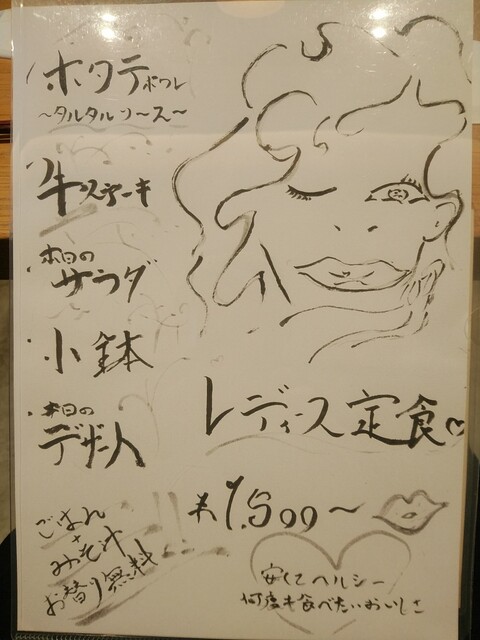 ・ホタテポワレ
~タルタルソース~
・牛ステーキ
・本日の
サラダ
・小鉢
・本日の
デザート
レディース定食♡
¥1,500~
ごはん
+
みそ汁
お替り無料!!
安くてヘルシー
何度も食べたいおいしさ